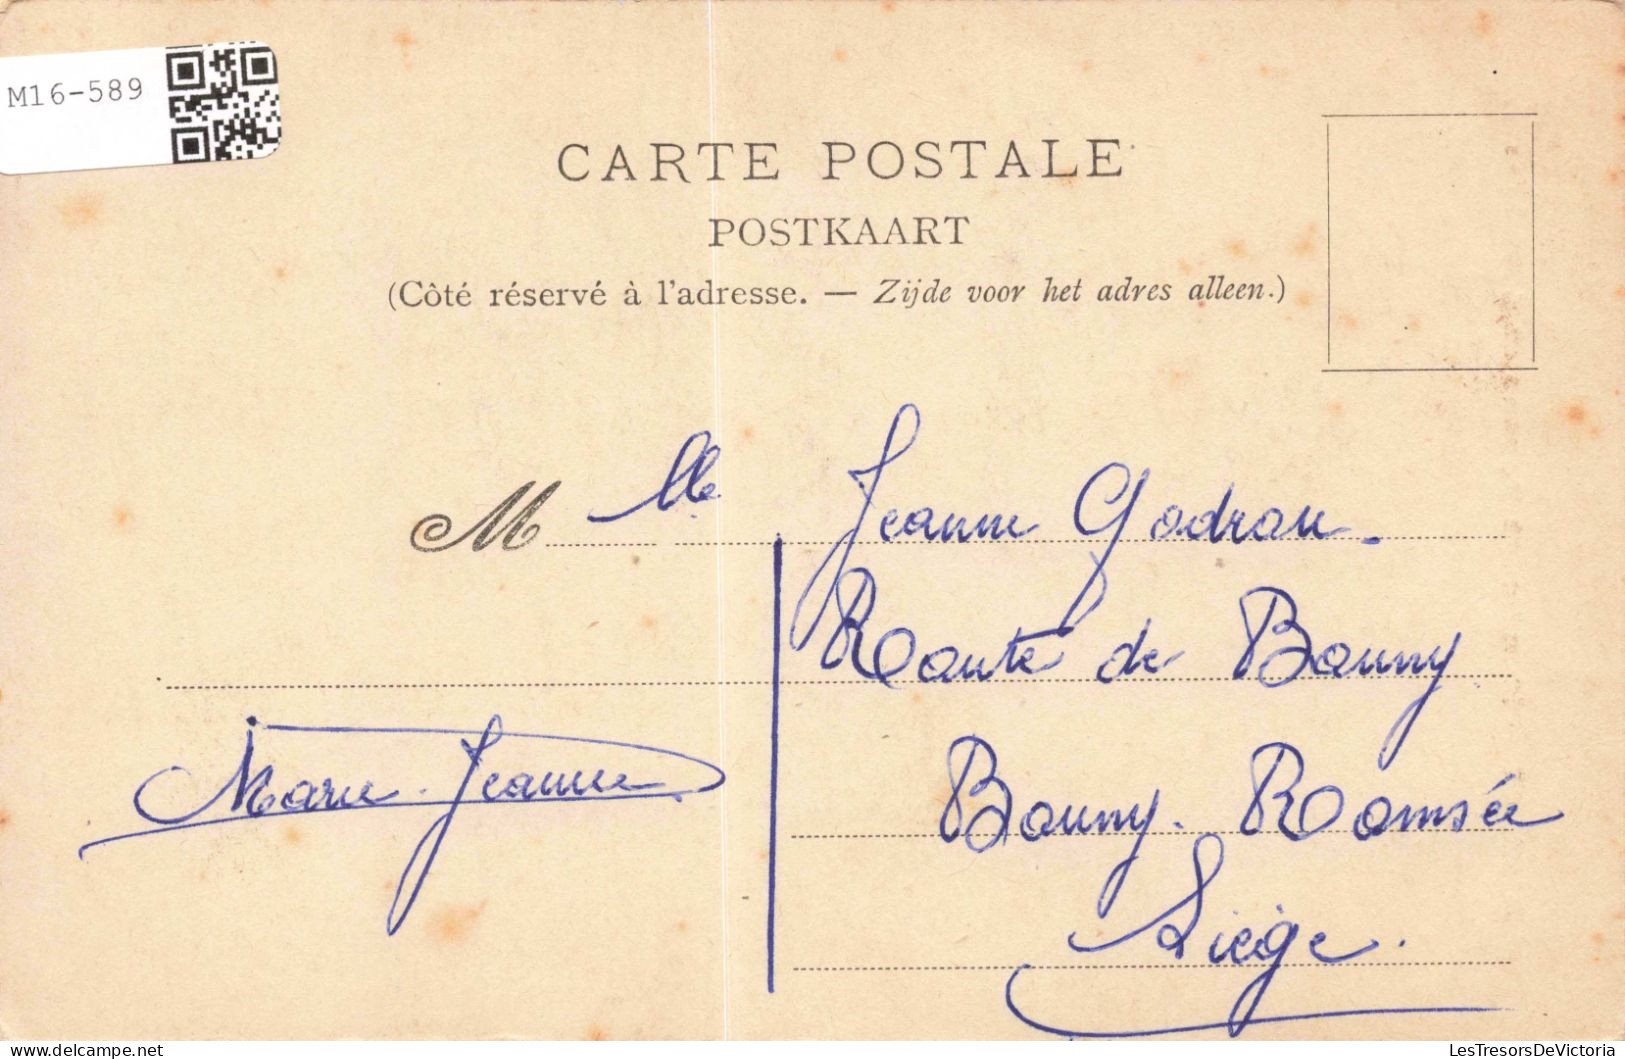 M16-589
CARTE POSTALE
POSTKAART
(Côté réservé à l'adresse. — Zijde voor het adres alleen.)
M lle Jeanne Godrau.
Route de Bouny
Marie-Jeanne
Bouny. Romsée
Liège.
LesTresorsDeVictoria